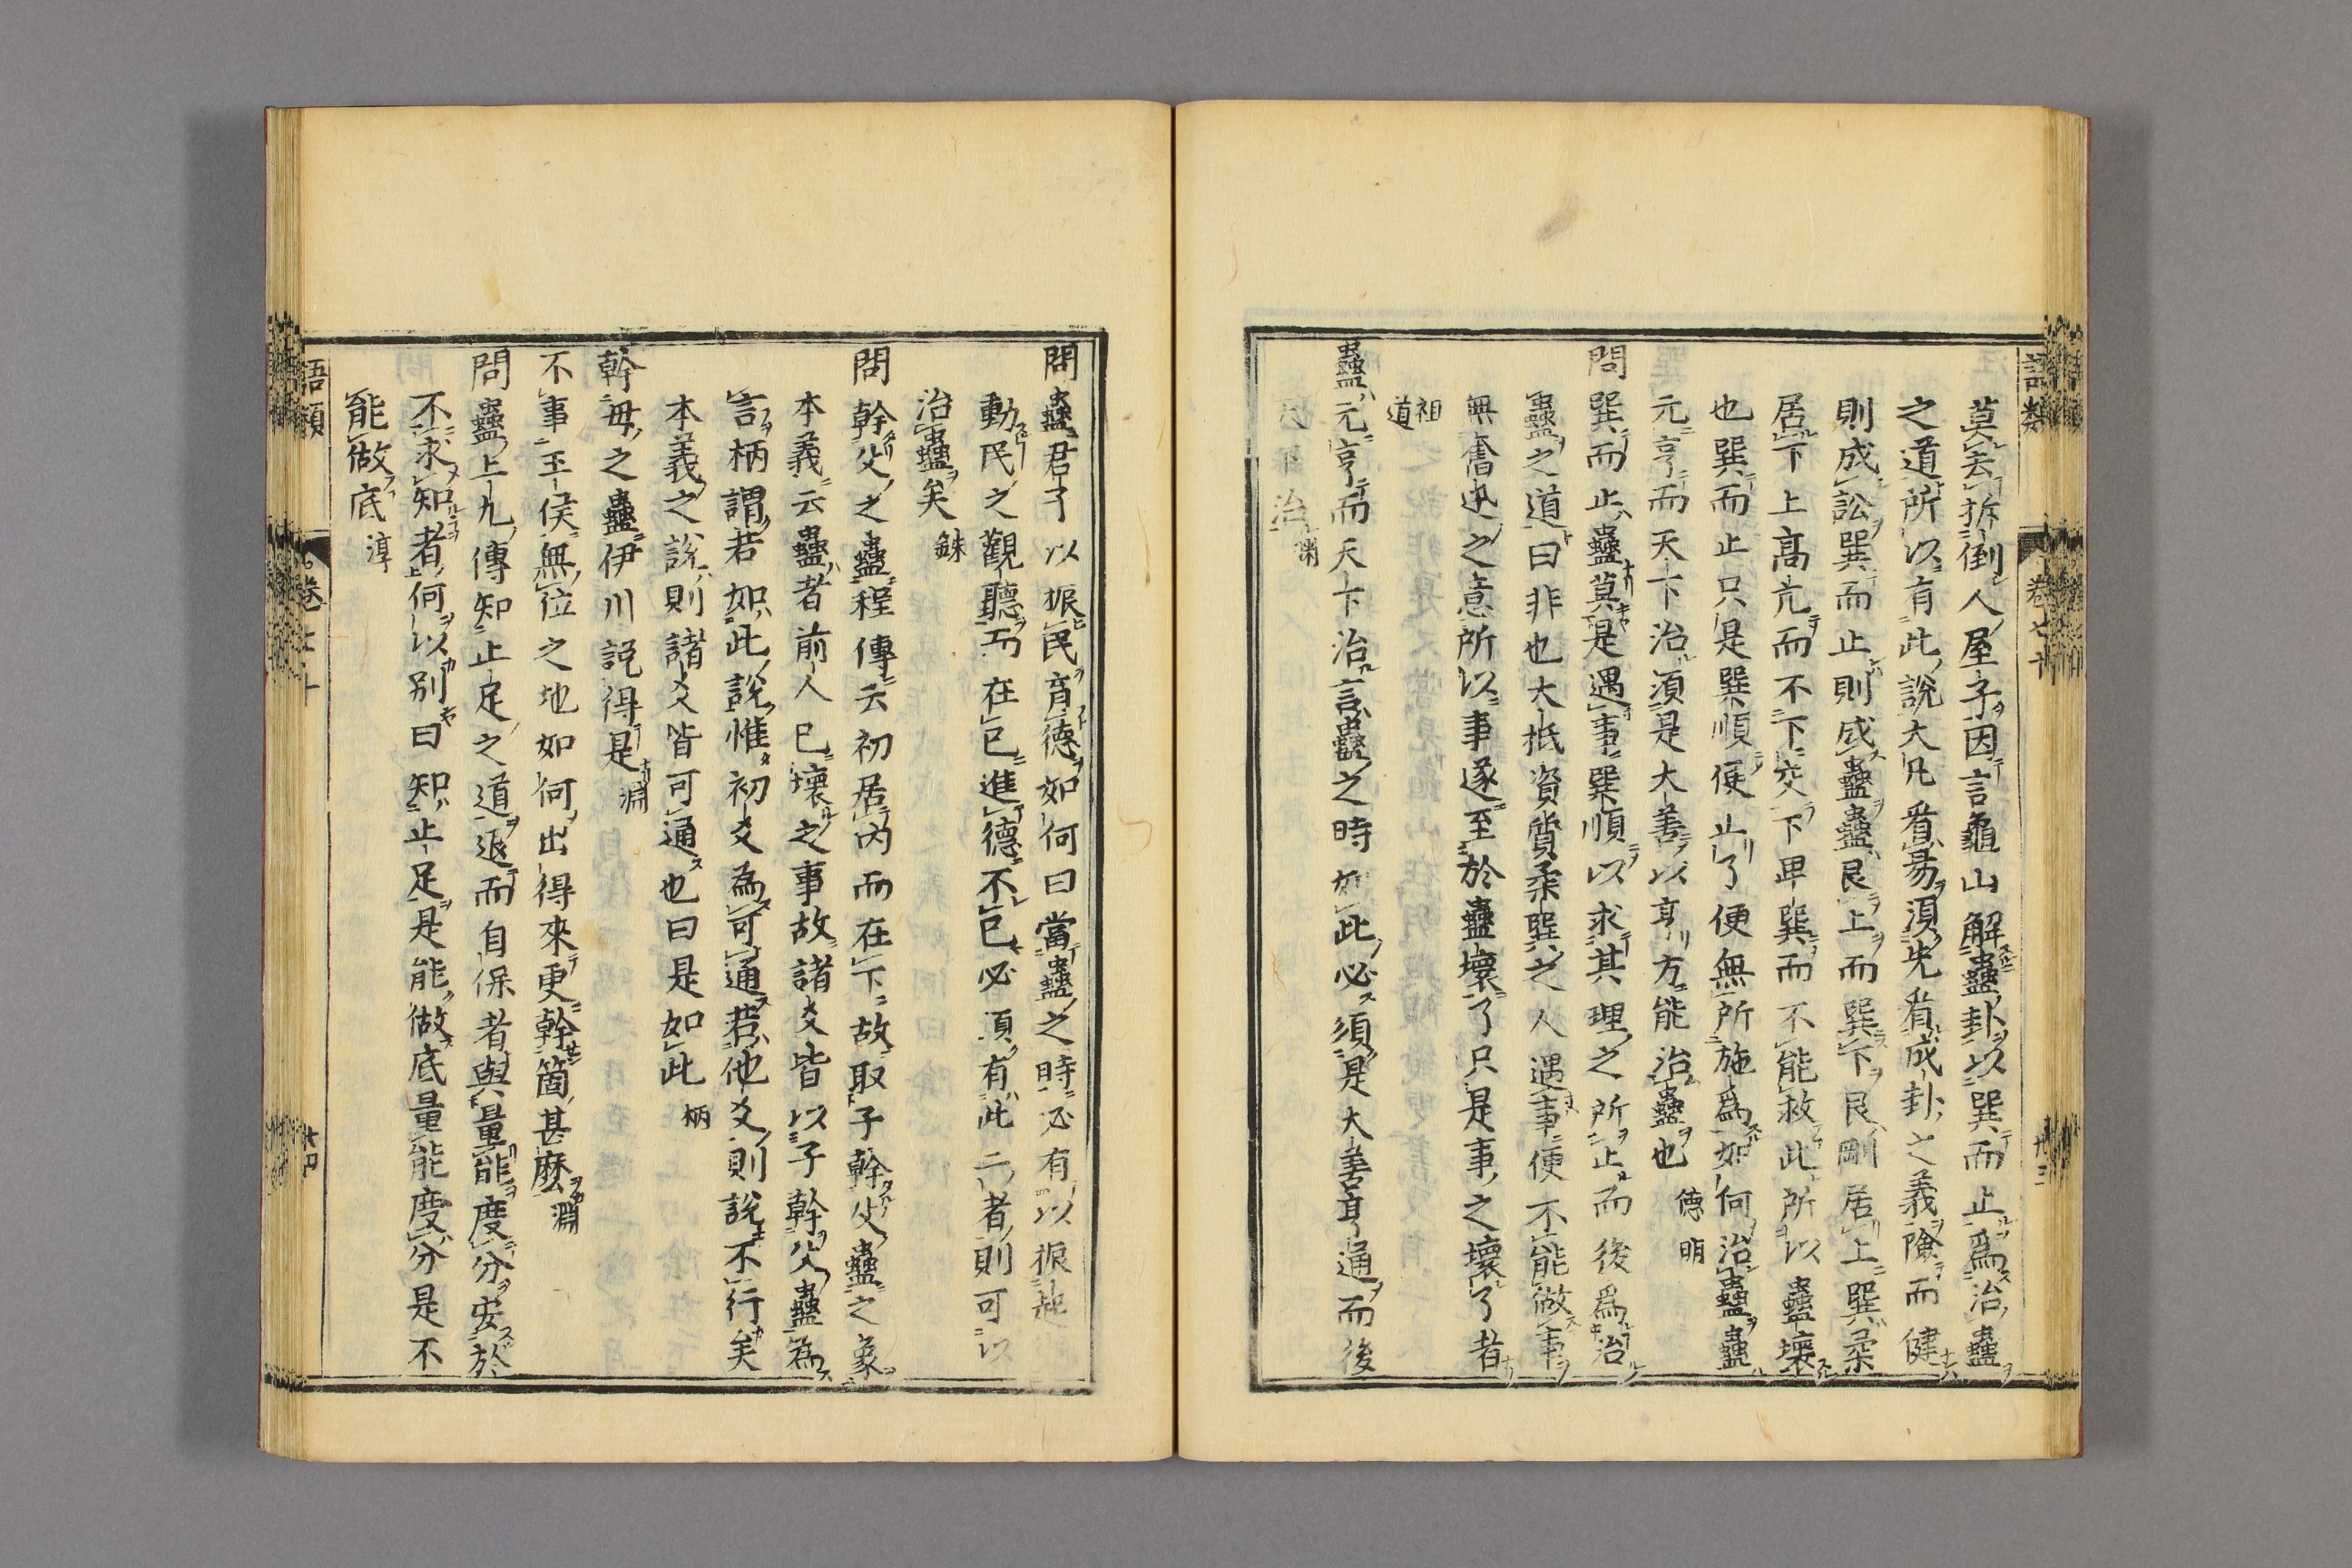 語類 卷七十 卅三
莫去拆倒人屋子因言龜山解蠱卦以巽而止爲治蠱
之道所以有此說大凡看易須先看成卦之義險而健
則成訟巽而止則成蠱蠱艮上而巽下艮剛居上巽柔
居下上高亢而不下交下卑巽而不能救此所以蠱壞
也巽而止只是巽順便止了便無所施爲如何治蠱蠱
元亨而天下治須是大善以亨方能治蠱也 德明
問巽而止蠱莫是遇事巽順以求其理之所止而後爲治
蠱之道曰非也大抵資質柔巽之人遇事便不能做事
無奮迅之意所以事遂至於蠱壞了只是事之壞了者
祖道
蠱元亨而天下治言蠱之時如此必須是大善亨通而後
天下治 淵
問蠱君子以振民育德如何曰當蠱之時必有以振起
動民之觀聽而在己進德不已必須有此二者則可以
治蠱矣 銖
問幹父之蠱程傳云初居內而在下故取子幹父蠱之象
本義云蠱者前人已壞之事故諸爻皆以子幹父蠱為
言柄謂若如此說惟初爻為可通若他爻則說不行矣
本義之說則諸爻皆可通也曰是如此 柄
幹母之蠱伊川說得是 淵
不事王侯無位之地如何出得來更幹箇甚麼 淵
問蠱上九傳知止足之道退而自保者與量能度分安於
不求知者何以別曰知止足是能做底量能度分是不
能做底 淳
語類 卷七十